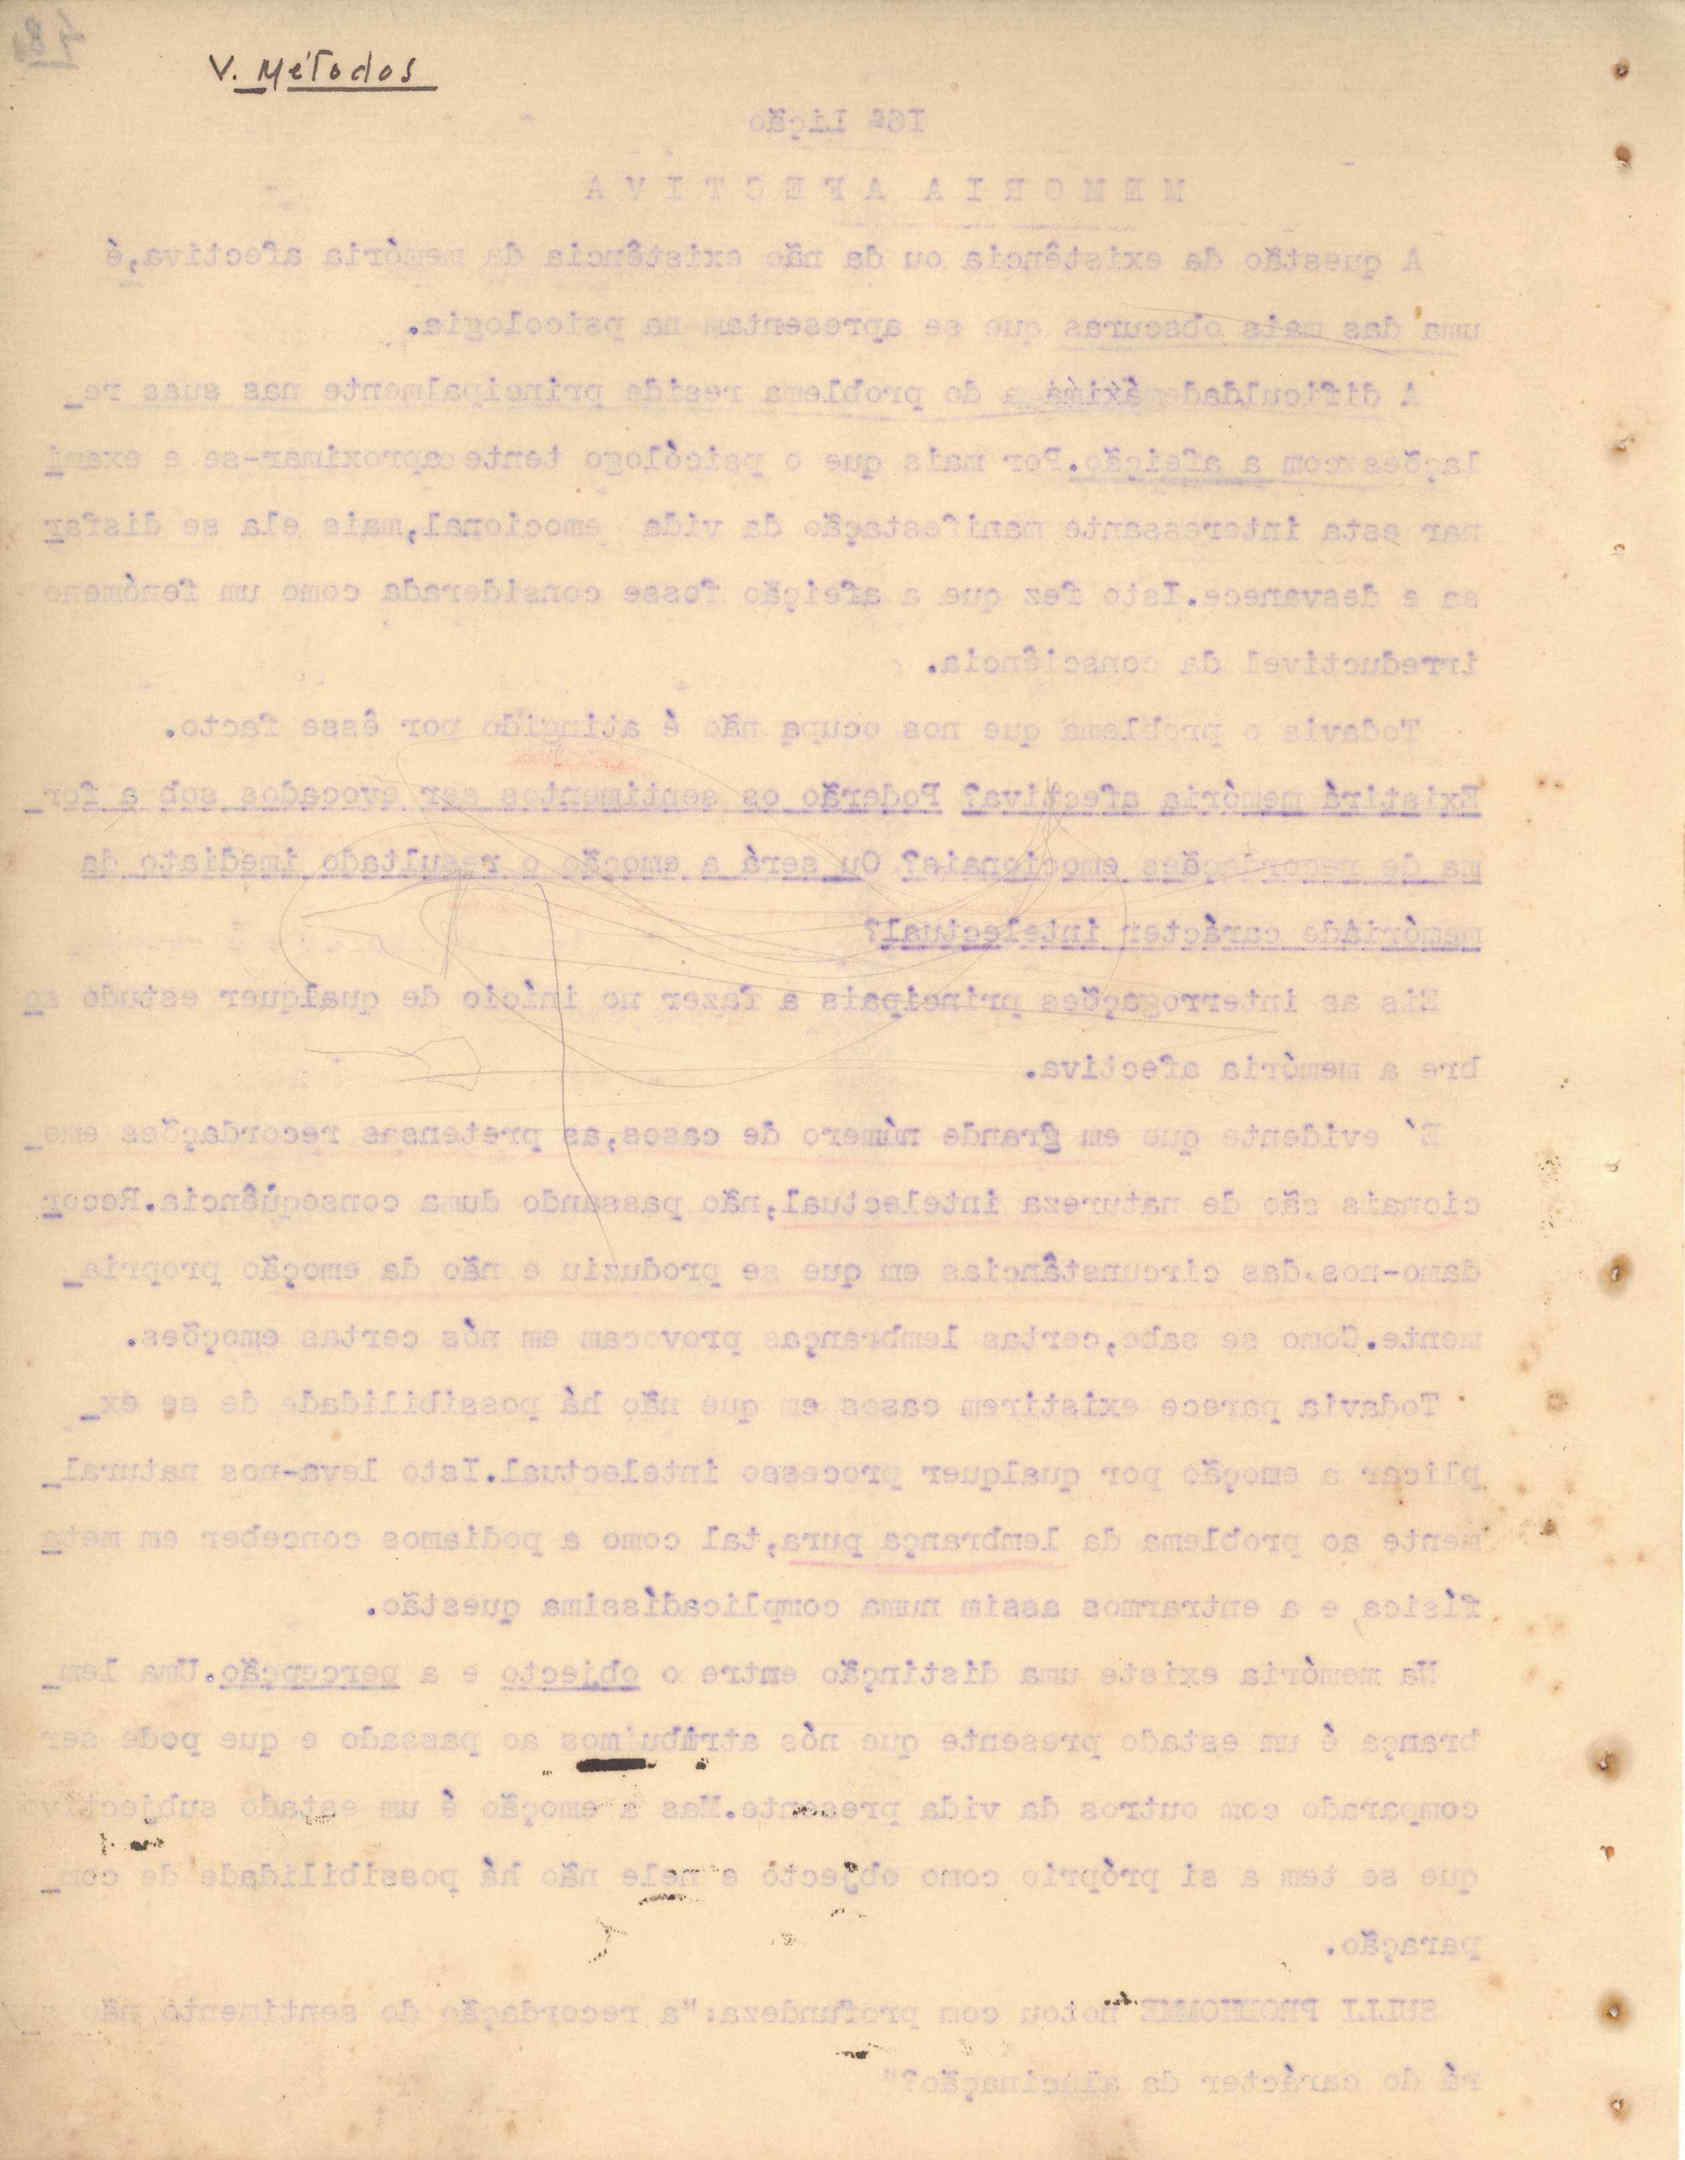 V. Métodos
48
16ª Lição
MEMORIA AFECTIVA
A questão da existência ou da não existência da memória afectiva,é
uma das mais obscuras que se apresentam na psicologia.
A dificuldade máxima do problema reside principalmente nas suas re_
lações com a afeição.Por mais que o psicólogo tente aproximar-se e exami
nar esta interessante manifestação da vida emocional,mais ela se disfar
sa e desvanece.Isto fez que a afeição fosse considerada como um fenómeno
irreductivel da consciência.
Todavia o problema que nos ocupa não é atingido por êsse facto.
Existirá memória afectiva? Poderão os sentimentos ser evocados sob a for_
ma de recordações emocionais? Ou será a emoção o resultado imediato da
memória de carácter intelectual?
Eis as interrogações principais a fazer no início de qualquer estudo so
bre a memória afectiva.
E' evidente que em grande número de casos,as pretensas recordações emo_
cionais são de natureza intelectual,não passando duma conseqüência.Recor
damo-nos das circunstâncias em que se produziu e não da emoção propria_
mente.Como se sabe,certas lembranças provocam em nós certas emoções.
Todavia parece existirem casos em que não há possibilidade de se ex_
plicar a emoção por qualquer processo intelectual.Isto leva-nos natural_
mente ao problema da lembrança pura,tal como a podiamos conceber em meta
física, e a entrarmos assim numa complicadíssima questão.
Na memória existe uma distinção entre o objecto e a percepção.Uma lem_
brança é um estado presente que nós atribuimos ao passado e que pode ser
comparado com outros da vida presente.Mas a emoção é um estado subjectivo
que se tem a si próprio como objecto e nele não há possibilidade de com_
paração.
SULLI PRUDHOMME notou com profundeza:"a recordação do sentimento não
rá do carácter da alucinação?"